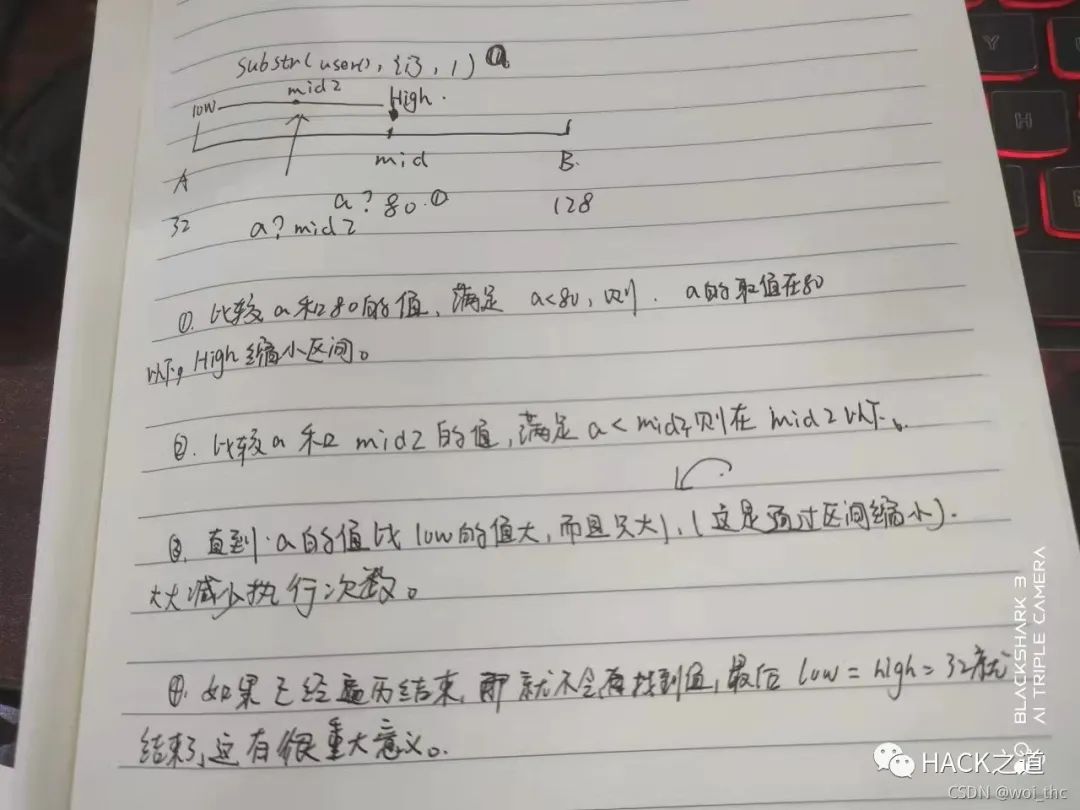 substr(user(), {i}, 1) a
mid2
low High.
mid B.
A
a?80.① 128
32 a?mid2
①. 比较a和80的值, 满足 a<80, 则. a的取值在80
以下, High缩小区间。
②. 比较a和 mid2 的值, 满足 a<mid2则在 mid2以下。
③. 直到.a的值比low的值大, 而且只大1, (这是通过区间缩小).
大大减少执行次数。
④. 如果已经遍历结束, 即就不会再找到值, 最后 low = high = 32就
结束了, 这有很重大意义。
BLACKSHARK 3
AI TRIPLE CAMERA
HACK之道
CSDN @woi_thc
Y
H